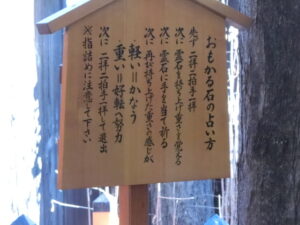 おもかる石の占い方
先ず 二拝二拍手一拝
次に 霊石を持ち上げ重さを覚える
次に 霊石に手を当て祈る
次に 再び持ち上げた重さの感じが、
軽い＝かなう
重い＝好転へ努力
次に 二拝二拍手一拝して退出
※指詰めに注意して下さい